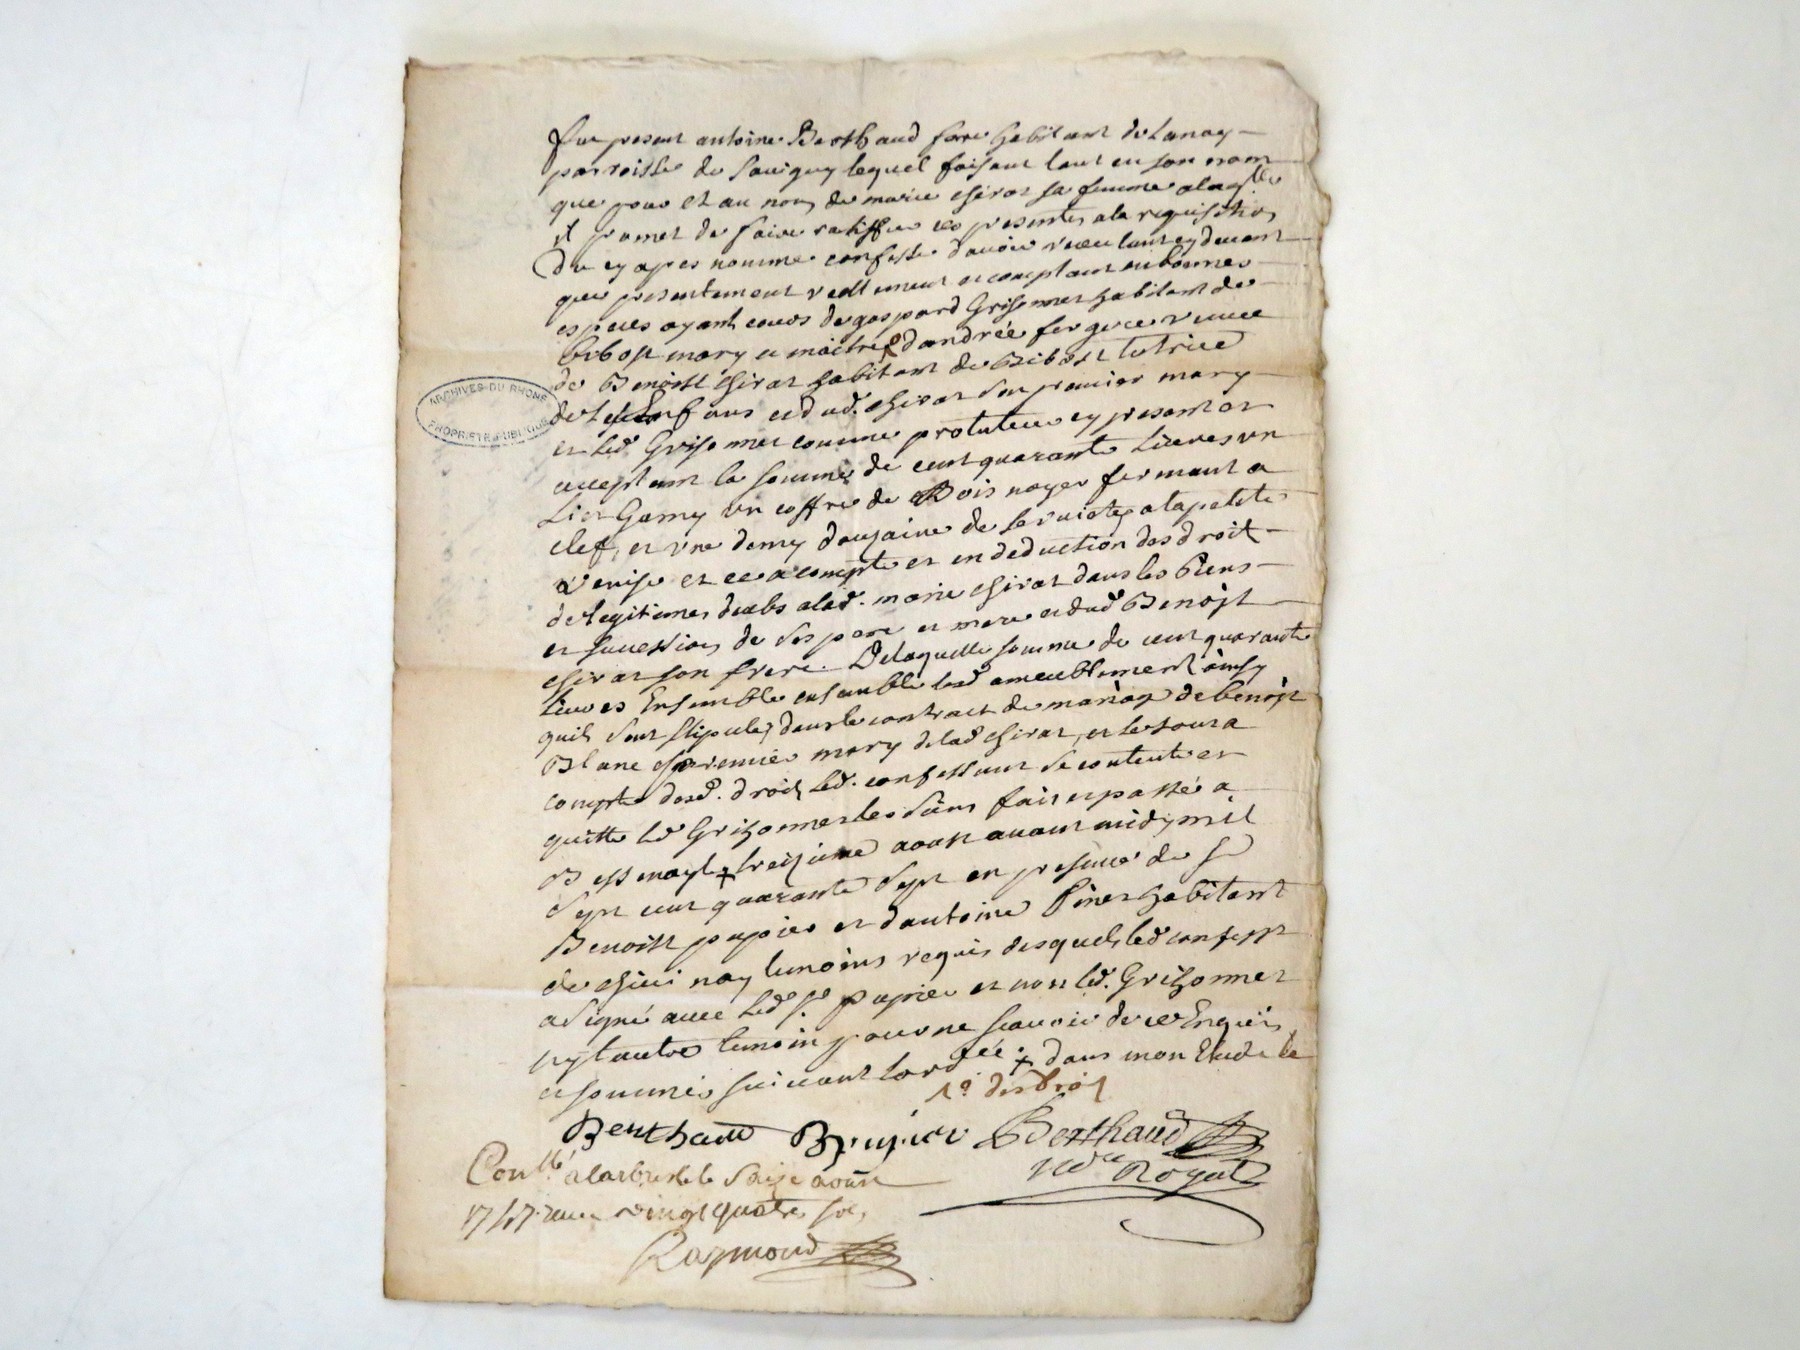 fut present antoine Berthaud fere habitant de Lanay
parroisse de Savigny lequel faisant tant en son nom
que pour et au nom de marie chirat sa femme a laqlle
il promet de faire ratiffier ces presentes a la requisition
du cy apres nommé confesse d'avoir receu tant cy devant
que presentement reellement et comptant en bonnes
especes ayant cours de gaspard Grisonnet habitant de
bibost mary et maitre d'andrée fergere veuve
de Benoist chirat habitant de Bibost tutrice
de enfans et dud. chirat son premier mary
et led. Grisonnet comme protuteur cy present et
acceptant la somme de cent quarante Livres un
Lict Garny un coffre de Bois noyer fermant a
clef, et une demy douzaine de serviettes a la petite
Venise et ce a compte et en deduction des droit
de legitimes deubs a lad. marie chirat dans les Biens
et succession de ses pere et mere et dud Benoist
chirat son frere. De laquelle somme de cent quarante
Livres Ensemble ensemble lesd ameublement ainsy
quils sont stipules dans le contract de mariage de benoist
Blanc premier mary de lad chirat, et le tout a
compte desd. droits led. confessant se contente et
quitte led Grizonnet les siens fait et passé a
Bessenay + treizieme aoust avant midy mil
sept cent quarante sept en presence de sr
Benoist pupier et d'antoine Pinet habitant
de chevinay temoins requis desquels led confesst
a signé avec led sr. pupier et non led. Grizonnet
ny l'autre temoin pour ne scavoir de ce Enquis
et sommés suivant l'ordce. + dans mon Etude le
Berthaud B. pupier Berthaud
Conllé a larbresle le seize aoust
nore Royal
1747 receu vingt quatre sols
Raymond
ARCHIVES DU RHONE
PROPRIETE PUBLIQUE